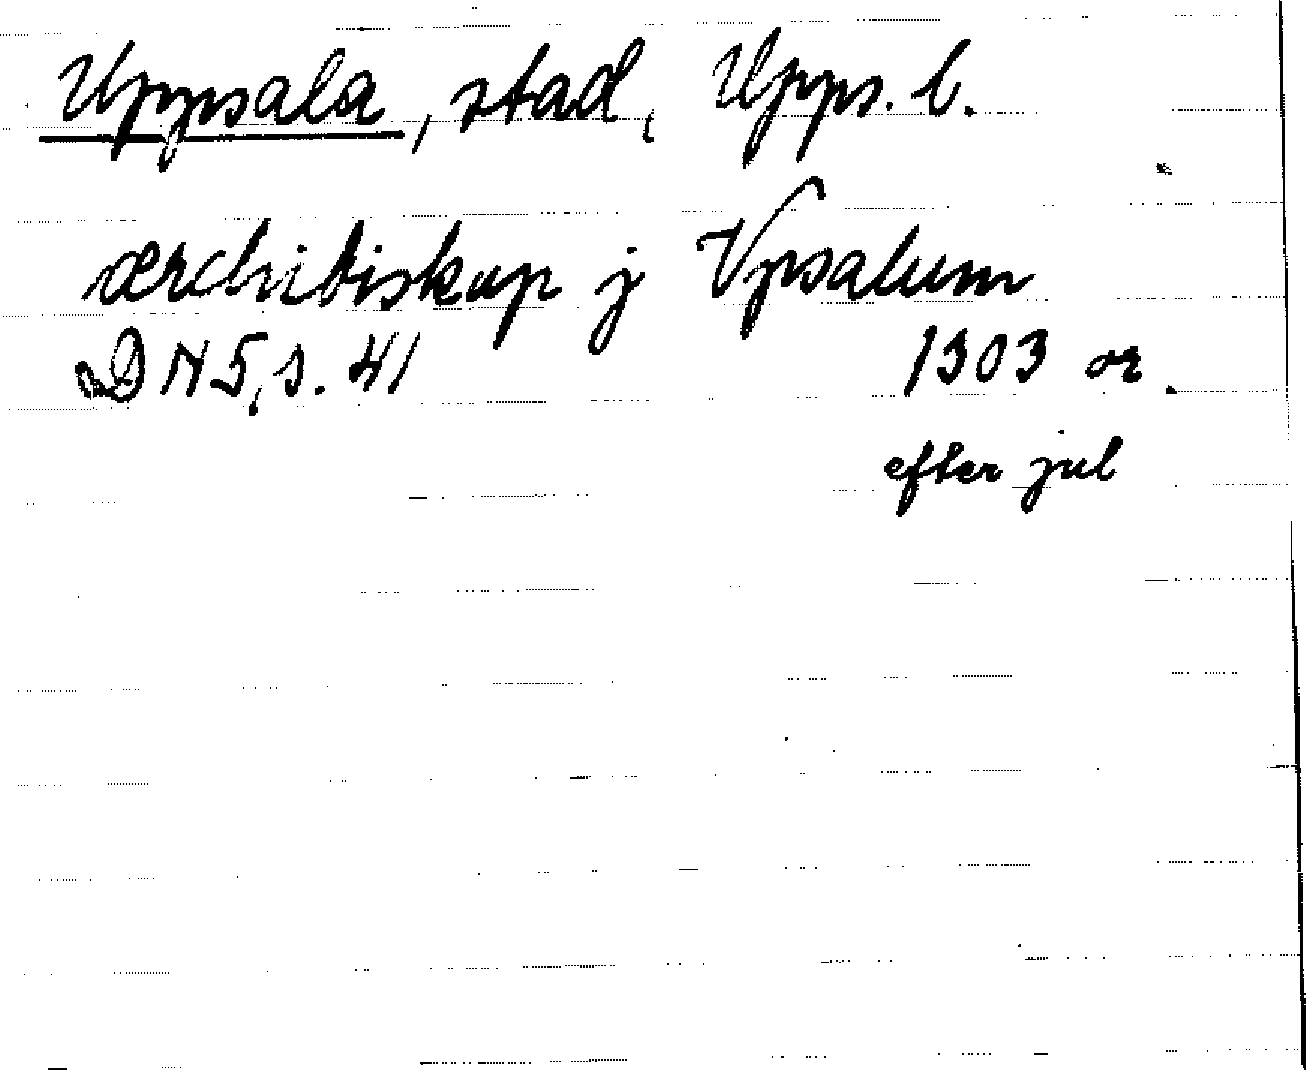 Uppsala, stad, Upps. l.
ærchibiskup j Vpsalum
DN 5, s. 41 1303 or.
efter jul